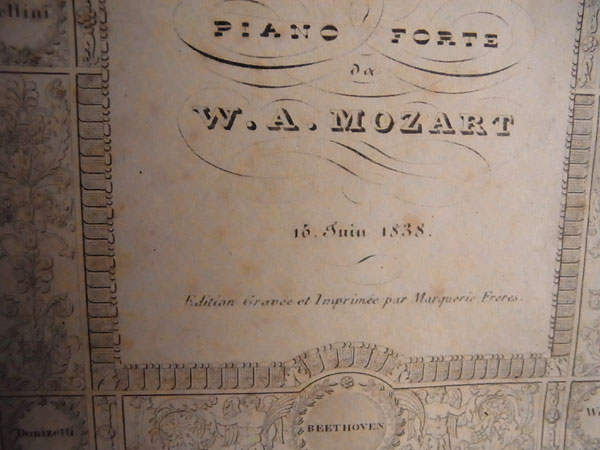 ellini
PIANO FORTE
da
W. A. MOZART
15. Juin 1838.
Edition Gravée et Imprimée par Marquerie Frères.
BEETHOVEN
Donizetti